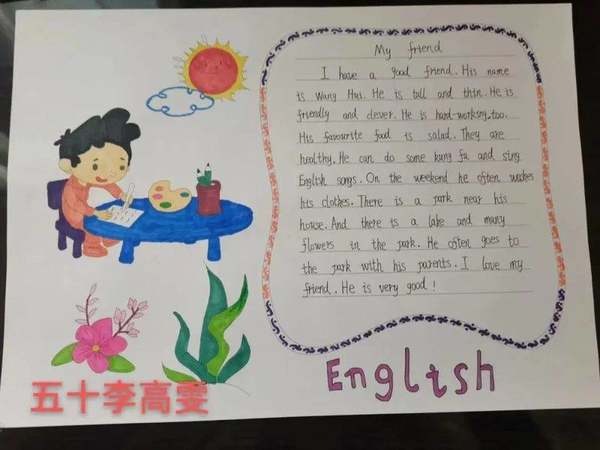 My friend
I have a good friend. His name
is Wang Hui. He is tall and thin. He is
friendly and clever. He is hard-working, too.
His favourite food is salad. They are
healthy. He can do some kung fu and sing
English songs. On the weekend he often washes
his clothes. There is a park near his
house. And there is a lake and many
flowers in the park. He often goes to
the park with his parents. I love my
friend. He is very good!
English
五十李高雯